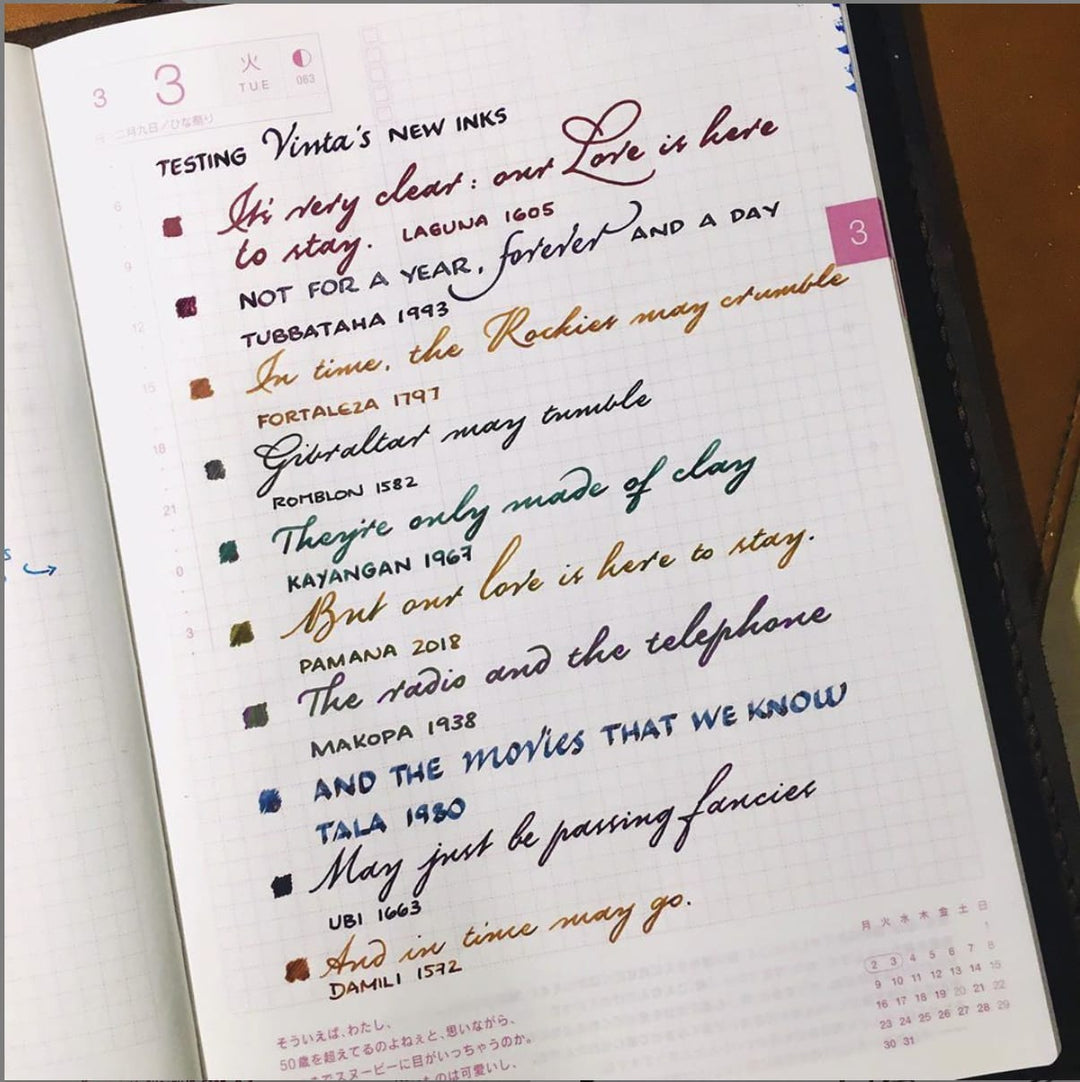 3 3 火 TUE 063
二月九日/ひな祭り
TESTING Vinta's NEW INKS
It's very clear: our Love is here
to stay. LAGUNA 1605
NOT FOR A YEAR, forever AND A DAY
TUBBATAHA 1993
In time, the Rockies may crumble
FORTALEZA 1797
Gibraltar may tumble
ROMBLON 1582
They're only made of clay
KAYANGAN 1967
But our love is here to stay.
PAMANA 2018
The radio and the telephone
MAKOPA 1938
AND THE movies THAT WE KNOW
TALA 1980
May just be passing fancies
UBI 1663
And in time may go.
DAMILI 1572
3
6
9
12
15
18
21
0
3
月 火 水 木 金 土 日
1
2 3 4 5 6 7 8
9 10 11 12 13 14 15
16 17 18 19 20 21 22
23 24 25 26 27 28 29
30 31
そういえば、わたし、
50歳を超えてるのよねぇと、思いながら、
でスヌーピーに目がいっちゃうのか。
のは可愛いし、